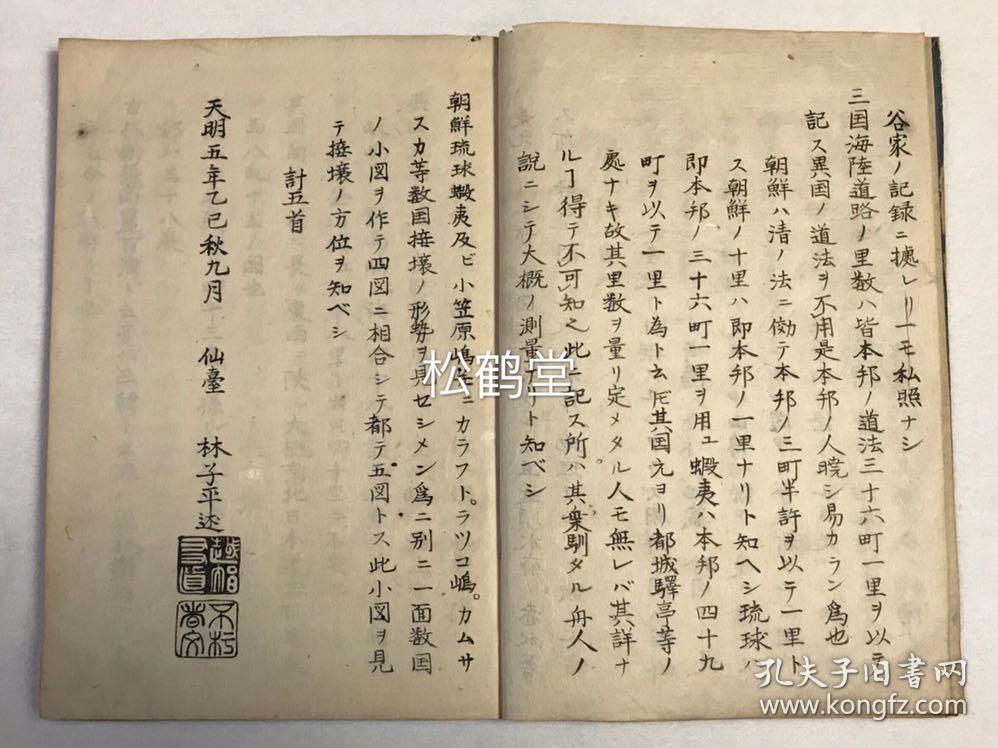 谷家ノ記録ニ㨿レリ一モ私照ナシ
三国海陸道路ノ里数ハ皆本邦ノ道法三十六町一里ヲ以テ
記ス異国ノ道法ヲ不用是本邦ノ人暁シ易カラン為也
朝鮮ハ清ノ法ニ傚テ本邦ノ三町半許ヲ以テ一里ト
ス朝鮮ノ十里ハ即本邦ノ一里ナリト知ヘシ琉球ハ
即本邦ノ三十六町一里ヲ用ユ蝦夷ハ本邦ノ四十九
町ヲ以テ一里ト為ト云𪜈其国元ヨリ都城驛亭等ノ
處ナキ故其里数ヲ量リ定メタル人モ無レバ其詳ナ
ルヿ得テ不可知之此ニ記ス所ハ其衆馴タル舟人ノ
説ニシテ大概ノ測量ナリト知ベシ
朝鮮琉球蝦夷及ビ小笠原嶋
カラフト。ラツコ嶋。カムサ
スカ等数国接壌ノ形勢ヲ見セシメン為ニ別ニ一面数国
ノ小図ヲ作テ四図ニ相合シテ都テ五図トス此小図ヲ見
テ接壌ノ方位ヲ知ベシ
計五首
天明五年乙巳秋九月 仙臺 林子平述
松鹤堂
孔夫子旧书网
www.kongfz.com